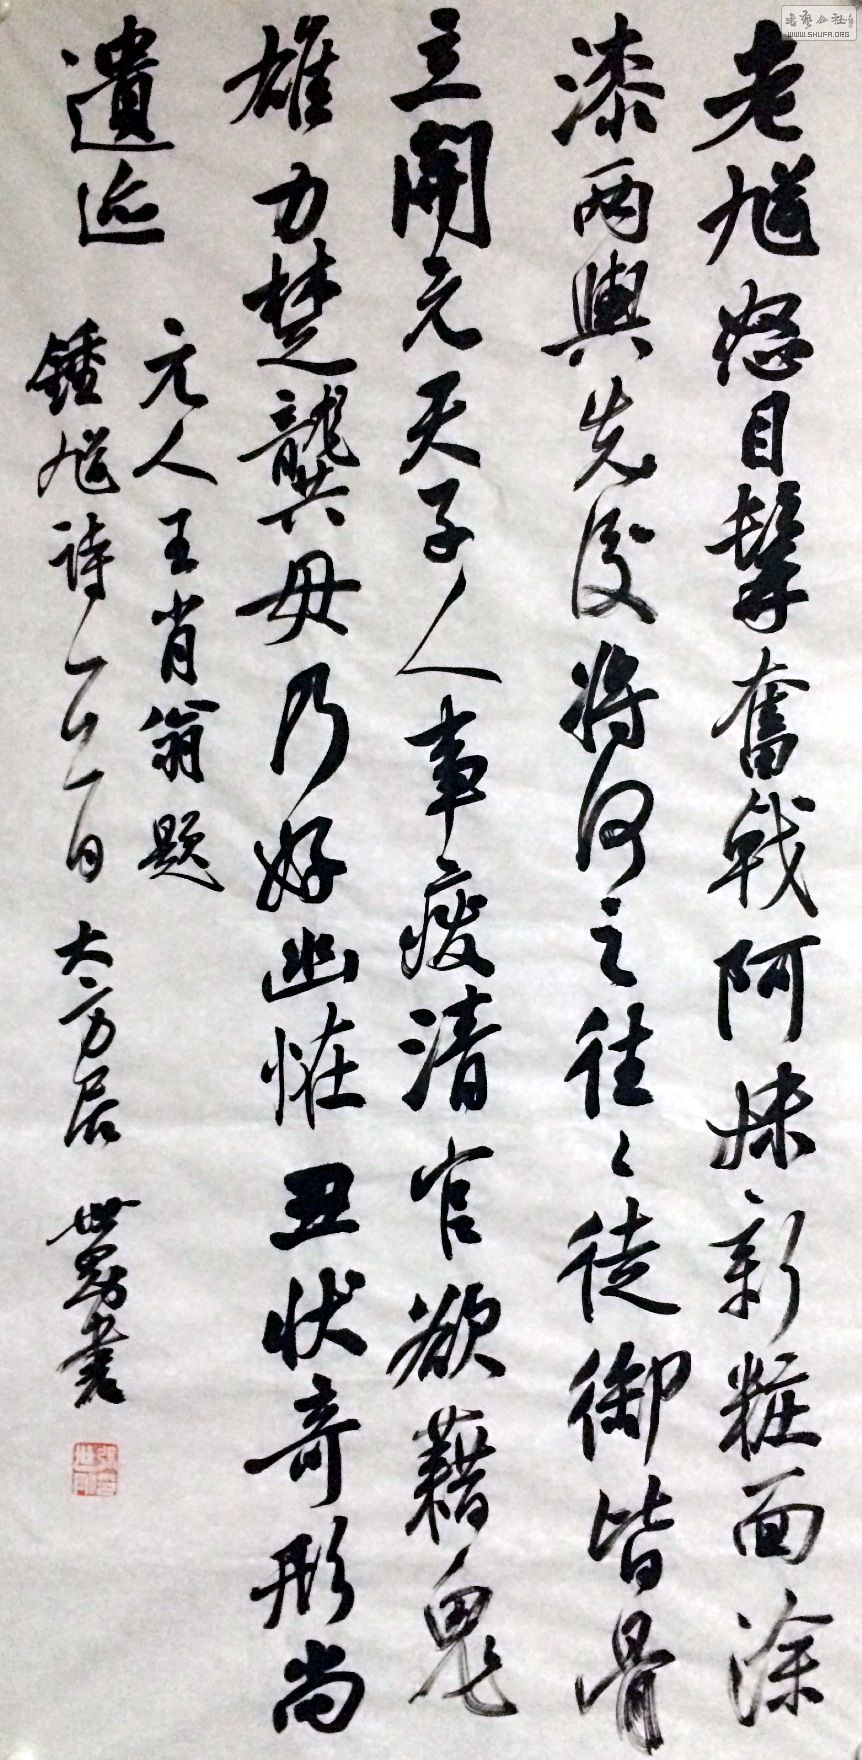 老馗怒目髯奋戟阿妹新粧面涂
漆两舆先后将何之往々徒御皆骨
立開元天子人事廢清宫欲藉鬼
雄力楚龔毋乃好幽怪丑状奇形尚
遺迹
元人王肖翁题
鍾馗诗
大方居
世勇书
书艺公社
WWW.SHUFA.ORG